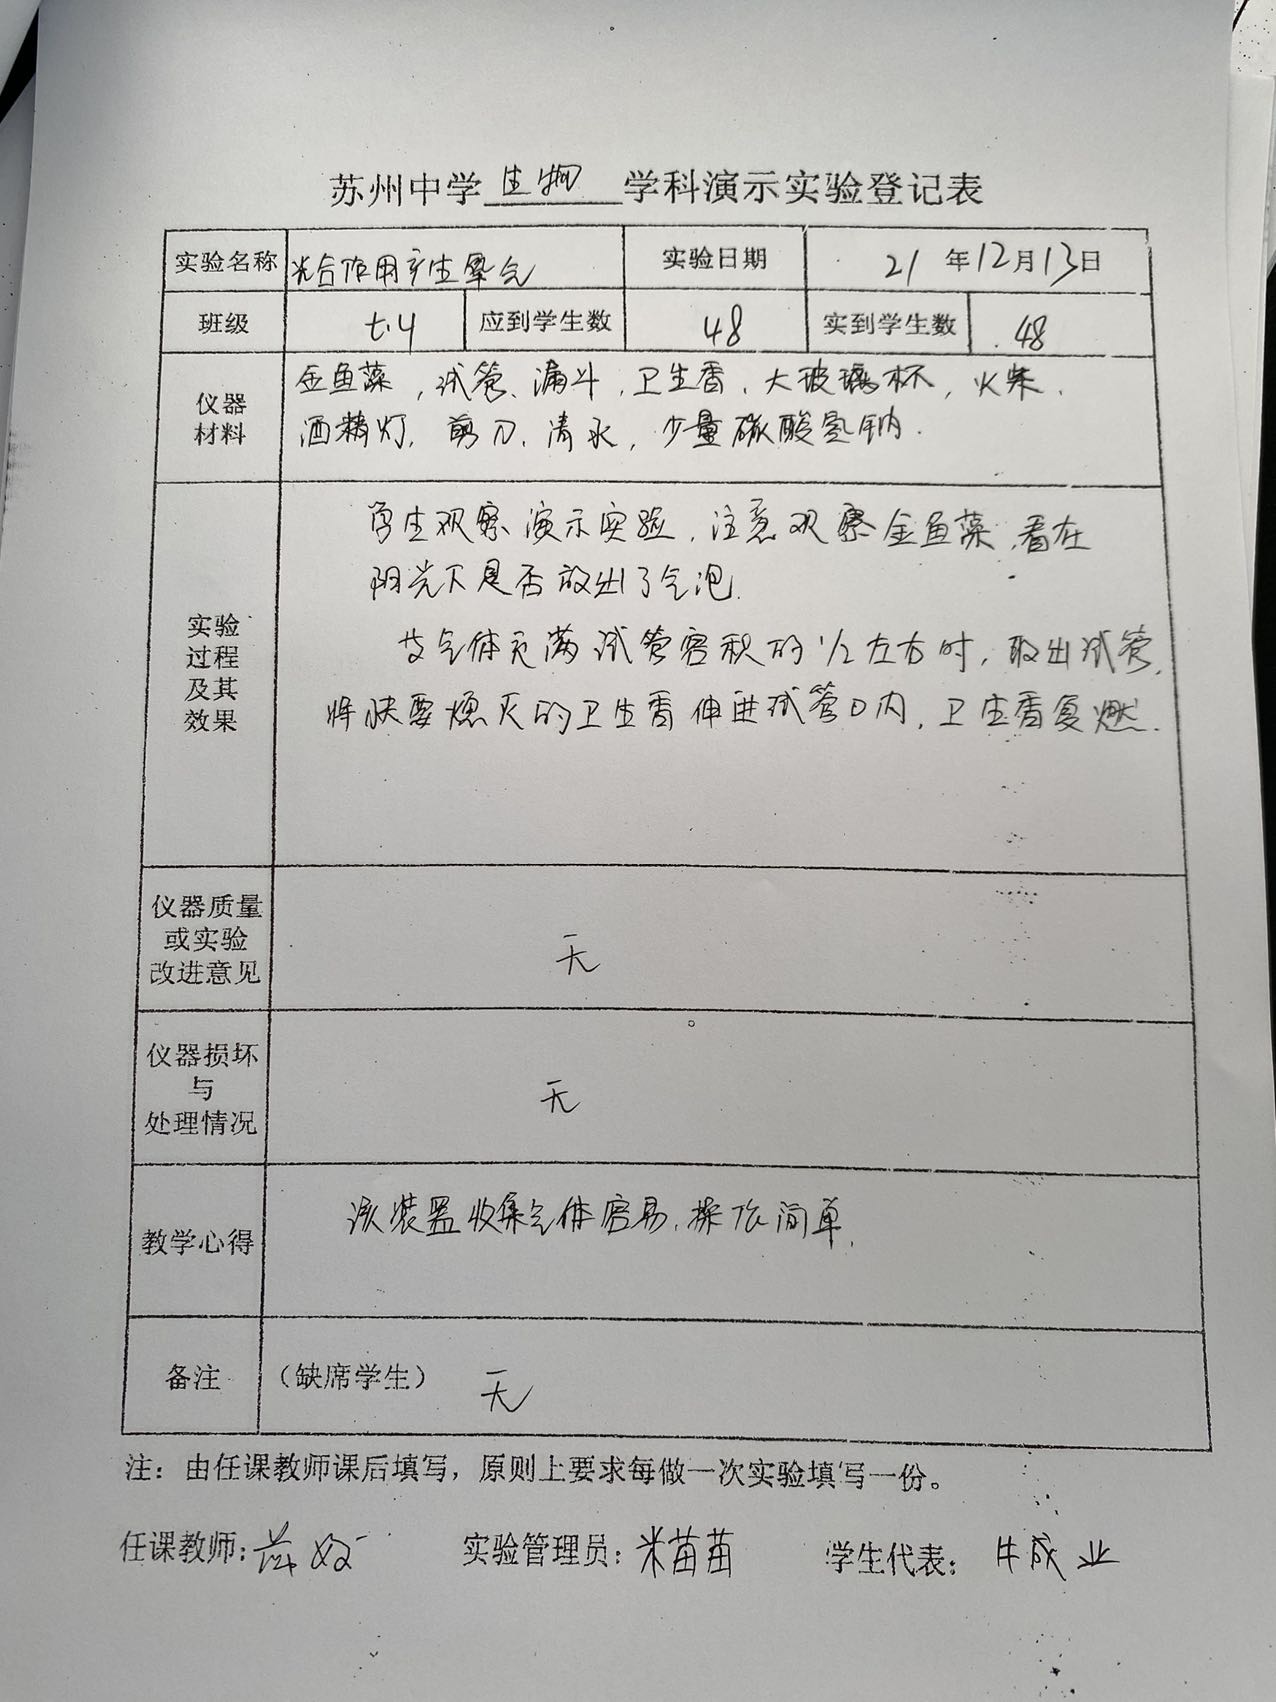 苏州中学 生物 学科演示实验登记表
实验名称 光合作用产生氧气 实验日期 21 年12月13日
班级 七.4 应到学生数 48 实到学生数 48
仪器材料 金鱼藻，试管、漏斗，卫生香，大玻璃杯，火柴，
酒精灯，剪刀，清水，少量碳酸氢钠.
实验过程及其效果
学生观察演示实验，注意观察金鱼藻，看在
阳光下是否放出了气泡.
当气体充满试管容积的1/2左右时，取出试管，
将快要熄灭的卫生香伸进试管口内，卫生香复燃.
仪器质量
或实验
改进意见
无
仪器损坏
与
处理情况
无
教学心得 该装置收集气体容易，操作简单.
备注 （缺席学生） 无
注：由任课教师课后填写，原则上要求每做一次实验填写一份。
任课教师： 实验管理员：米苗苗 学生代表：牛成业